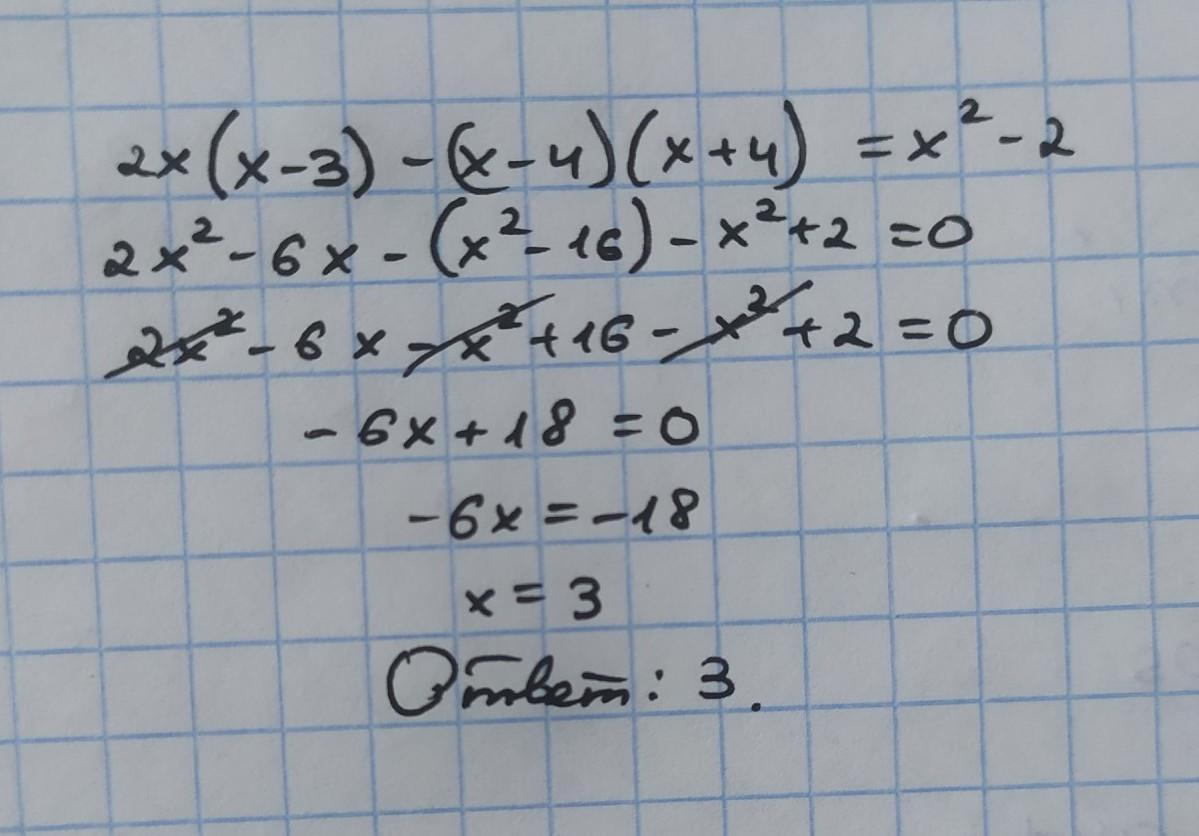 2x(x-3) -(x-4)(x+4) = x² - 2
2x² - 6x - (x² - 16) - x² + 2 = 0
2x² - 6x - x² + 16 - x² + 2 = 0
- 6x + 18 = 0
-6x = -18
x = 3
Ответ: 3.